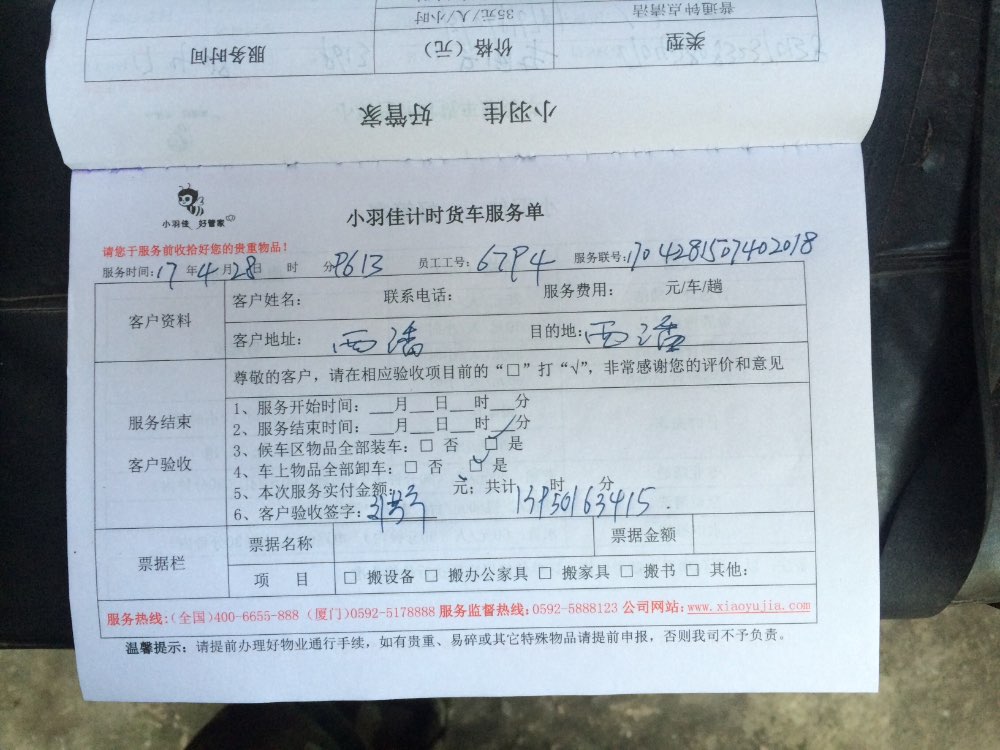 普通钟点清洁 35元/人/小时
类型 价格（元） 服务时间
小羽佳 好管家
小羽佳 好管家
小羽佳计时货车服务单
请您于服务前收拾好您的贵重物品！
服务时间：17年4月28日 时 分 P613 员工工号：67P4 服务联号：1704281507402018
客户资料
客户姓名： 联系电话： 服务费用： 元/车/趟
客户地址： 西潘 目的地：西潘
尊敬的客户，请在相应验收项目前的“□”打“√”，非常感谢您的评价和意见
服务结束
客户验收
1、服务开始时间：___月___日___时___分
2、服务结束时间：___月___日___时___分
3、候车区物品全部装车：□ 否 □ 是
4、车上物品全部卸车：□ 否 □ 是
5、本次服务实付金额： 元；共计 时 分
6、客户验收签字： 13950163415
票据栏
票据名称 票据金额
项 目 □ 搬设备 □ 搬办公家具 □ 搬家具 □ 搬书 □ 其他：
服务热线：（全国）400-6655-888（厦门）0592-5178888 服务监督热线：0592-5888123 公司网站：www.xiaoyujia.com
温馨提示：请提前办理好物业通行手续，如有贵重、易碎或其它特殊物品请提前申报，否则我司不予负责。